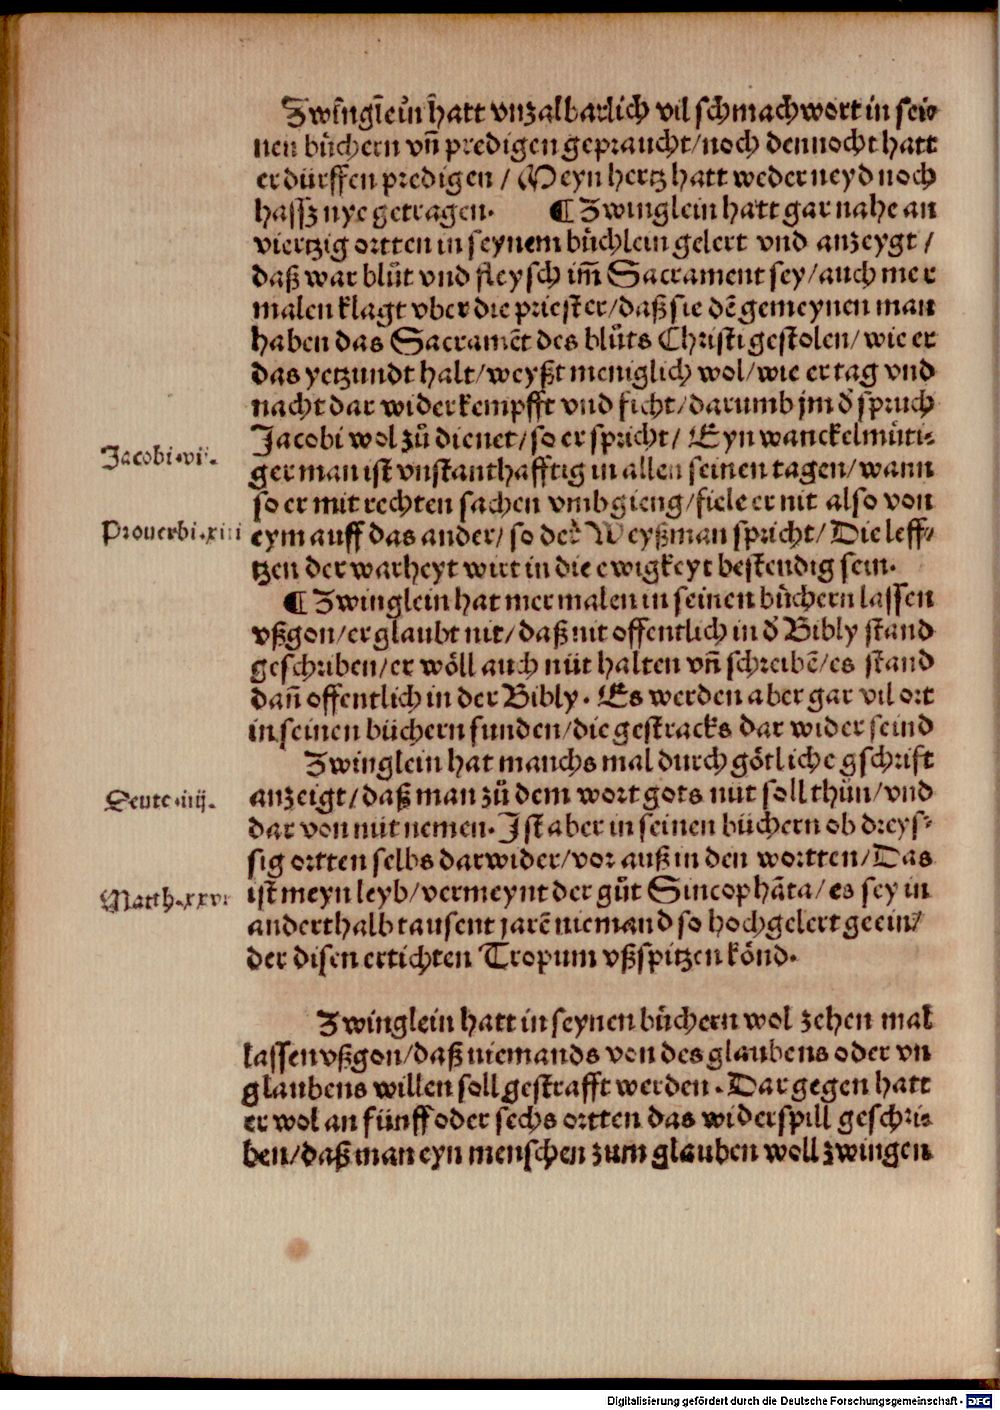 Zwinglein hatt vnzalbarlich vil schmachwort in sei⸗
nen bůchern vñ predigen gepraucht/noch dennocht hatt
er dürffen predigen / Meyn hertz hatt weder neyd noch
hassz nye getragen. ¶ Zwinglein hatt gar nahe an
viertzig ortten in seynem bůchlein gelert vnd anzeygt /
daß war blůt vnd fleysch im̃ Sacrament sey/auch mer
malen klagt vber die priester/daß sie dē gemeynen man
haben das Sacramēt des blůts Christi gestolen/wie er
das yetzundt halt/weyßt meniglich wol/wie er tag vnd
nacht dar wider kempfft vnd ficht/darumb jm d̃ spruch
Jacobi wol zů dienet/so er spricht/ Eyn wanckelmůti⸗
Jacobi.vi.
ger man ist vnstanthafftig in allen seinen tagen/wann
so er mit rechten sachen vmbgieng/fiele er nit also von
Prouerbi.xiii
eym auff das ander/so der Weyßman spricht/Die leff⸗
tzen der warheyt wirt in die ewigkeyt bestendig sein.
¶ Zwinglein hat mer malen in seinen bůchern lassen
vßgon/er glaubt nit/daß nit offentlich in d̃ Bibly stand
geschriben/er wöll auch nüt halten vñ schreibē/es stand
dañ offentlich in der Bibly. Es werden aber gar vil ort
in seinen büchern funden/die gestracks dar wider seind
Zwinglein hat manchs mal durch götliche gschrift
Deute.iiij.
anzeigt/daß man zů dem wort gots nüt soll thün/vnd
dar von nüt nemen. Jst aber in seinen büchern ob dreys⸗
sig ortten selbs darwider/vor auß in den wortten/Das
Matth.xxvi
ist meyn leyb/vermeynt der gůt Sincophāta/es sey in
anderthalb tausent jarē niemand so hochgelert geein⸗
der disen ertichten Tropum vßspitzen könd.
Zwinglein hatt in seynen bůchern wol zehen mal
lassen vßgon/daß niemands von des glaubens oder vn
glaubens willen soll gestrafft werden. Dar gegen hatt
er wol an fünff oder sechs ortten das widerspill geschri⸗
ben/daß man eyn menschen zum glauben woll zwingen
Digitalisierung gefördert durch die Deutsche Forschungsgemeinschaft - DFG